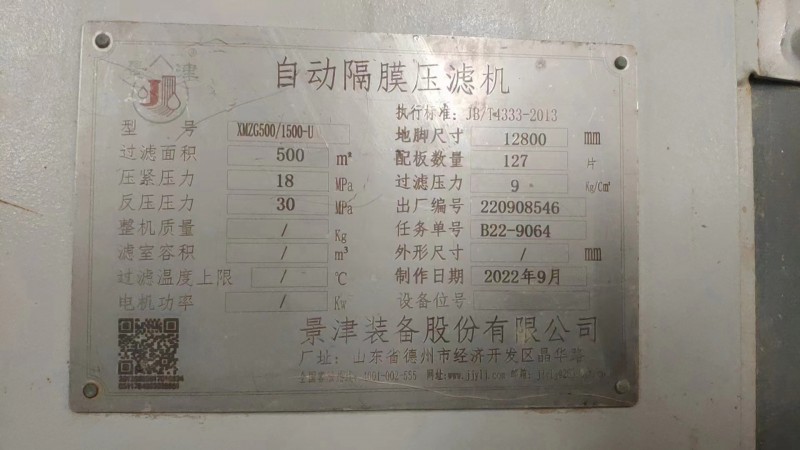 景津
自动隔膜压滤机
执行标准：JB/T4333-2013
型 号 XMZG500/1500-U 地脚尺寸 12800 mm
过滤面积 500 m² 配板数量 127 片
压紧压力 18 MPa 过滤压力 9 Kg/Cm²
反压压力 30 MPa 出厂编号 220908546
整机质量 / Kg 任务单号 B22-9064
滤室容积 / m³ 外形尺寸 / mm
过滤温度上限 / ℃ 制作日期 2022年9月
电机功率 / Kw 设备位号
景津装备股份有限公司
厂址：山东省德州市经济开发区晶华路
网址:www.jjylj.com 邮箱: